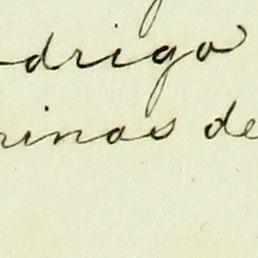 drigo
rinos de